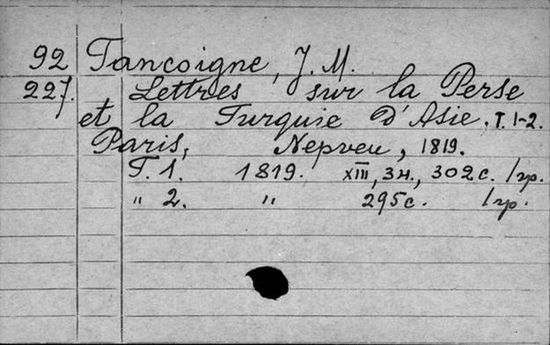 92 Tancoigne, J. M.
227. Lettres sur la Perse
et la Turquie d'Asie. T. 1-2.
Paris, Nepveu, 1819.
T. 1. 1819. XIII, 3н., 302 c. 1 гр.
" 2. " 295 c. 1 гр.